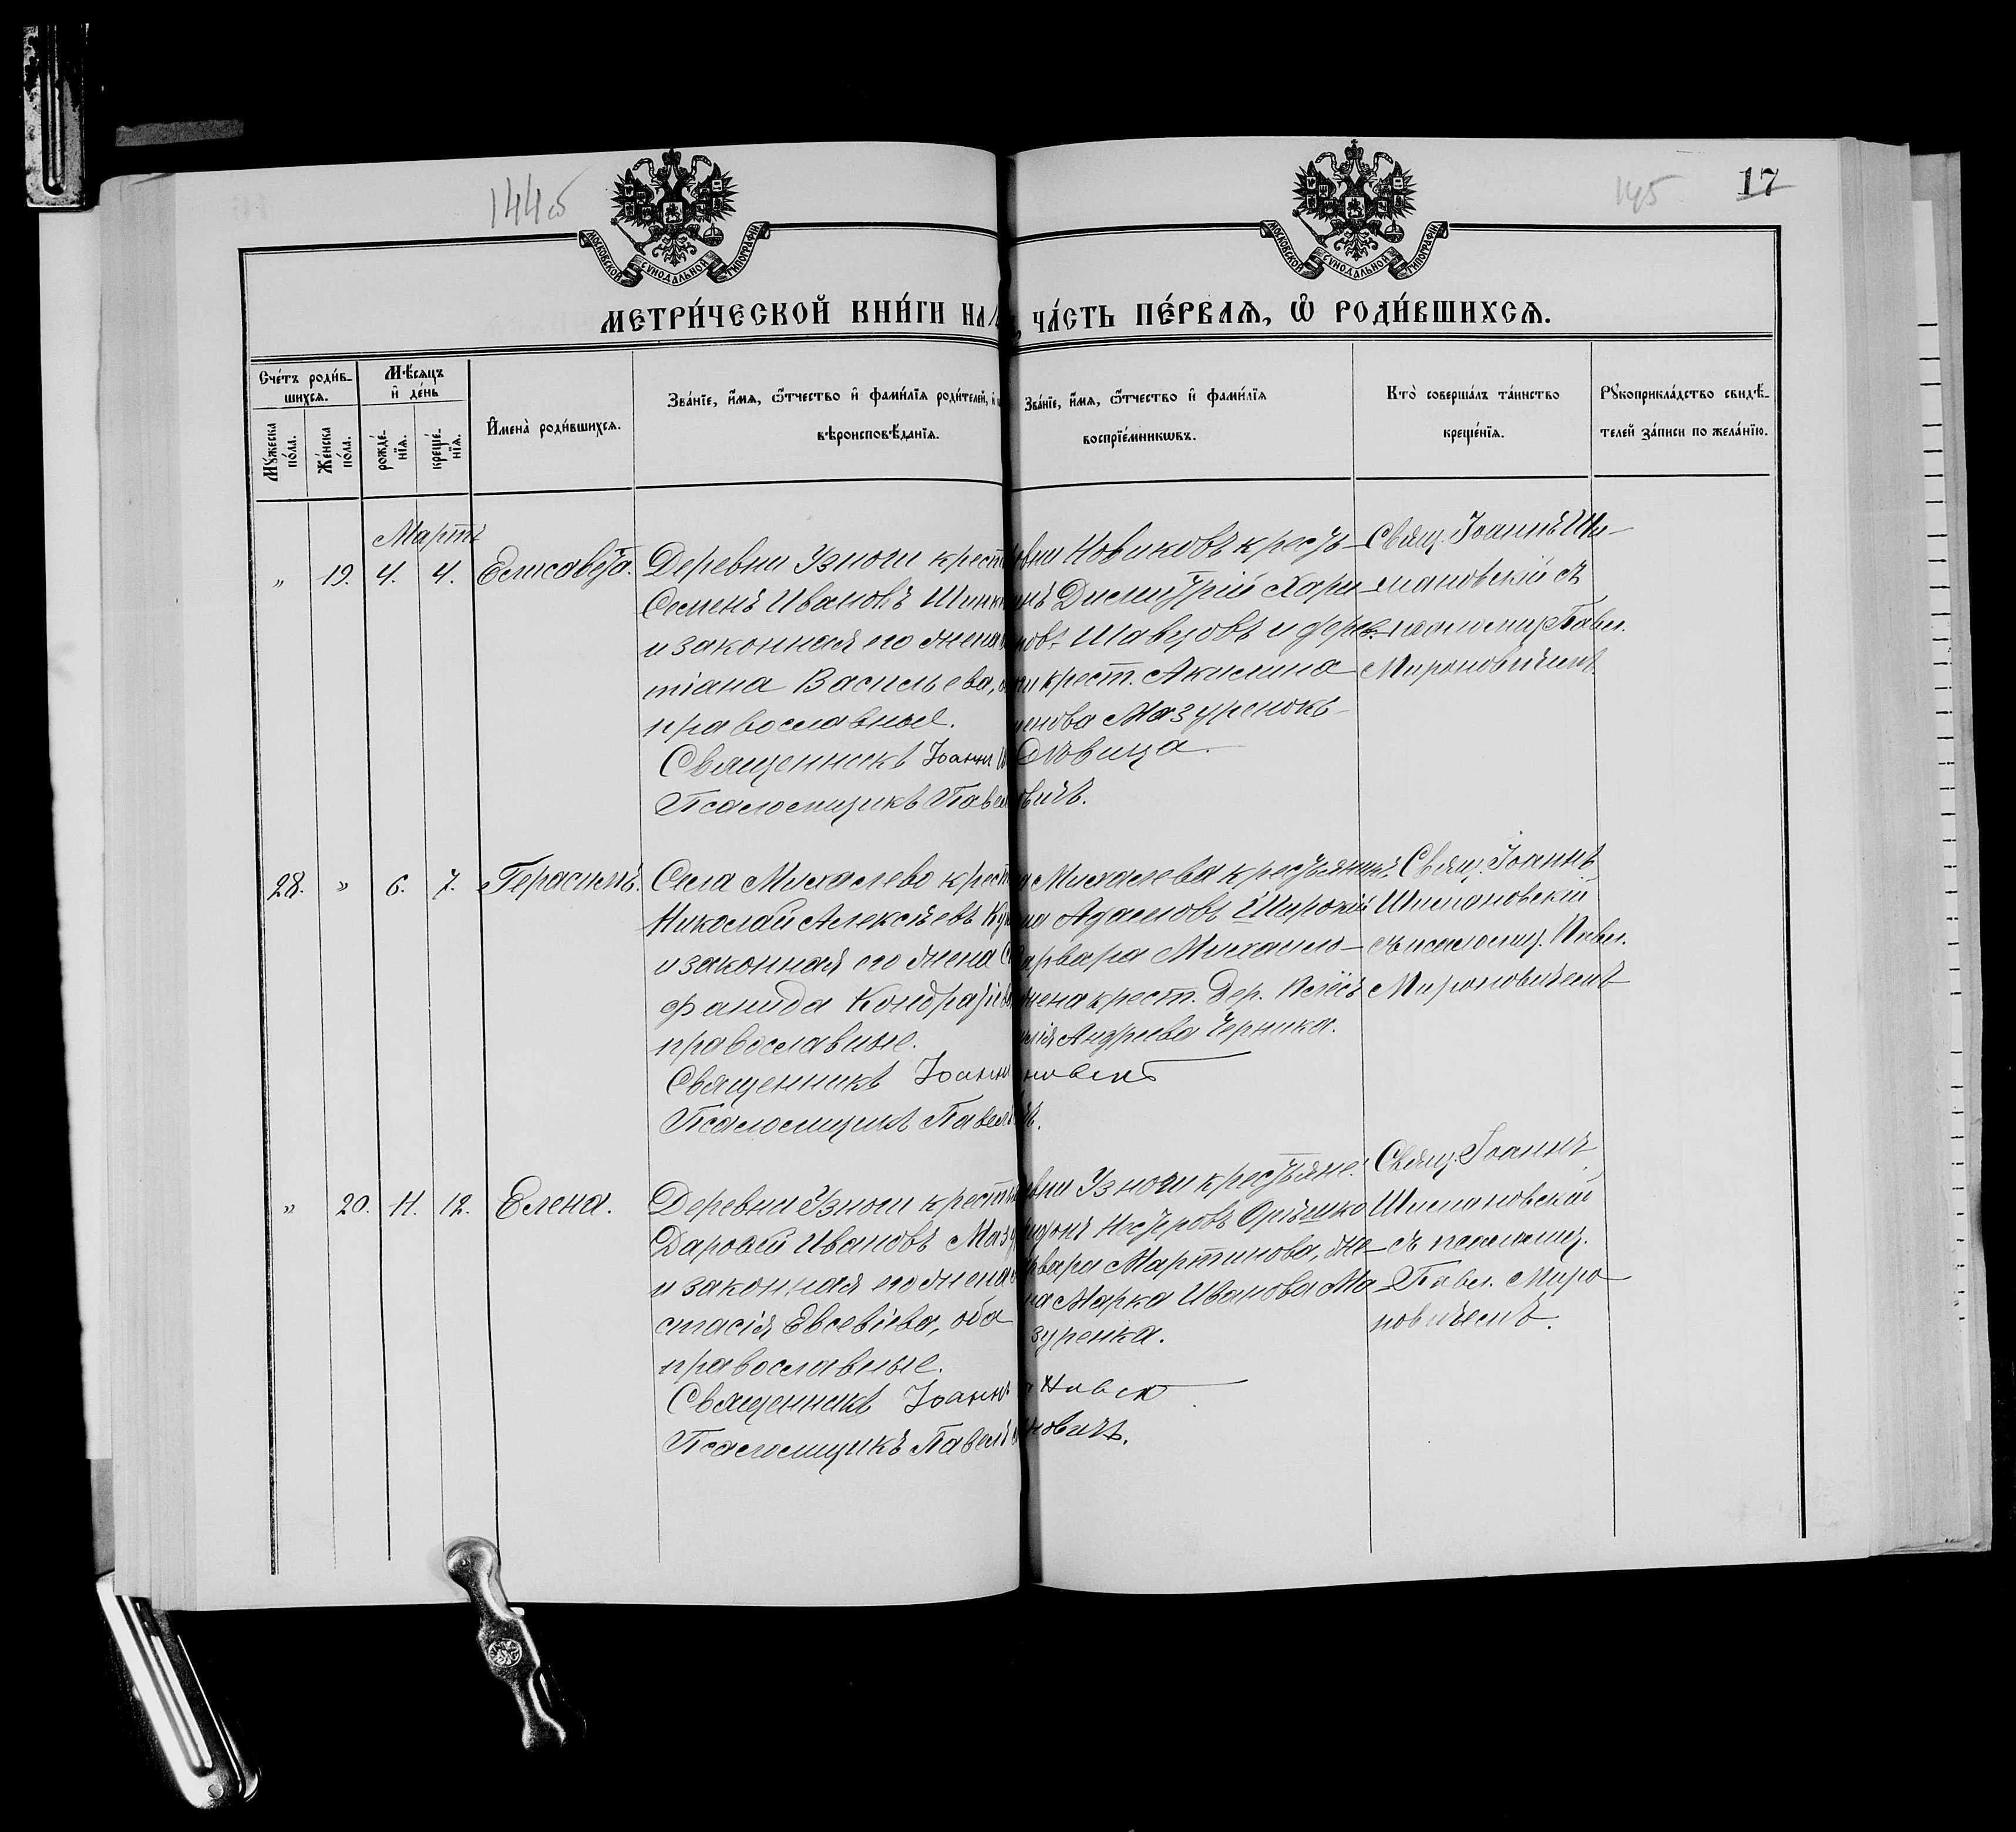 144об
145
17
МОСКОВСКОЙ СѴНОДАЛЬНОЙ ТИПОГРАФІИ
МОСКОВСКОЙ СѴНОДАЛЬНОЙ ТИПОГРАФІИ
МЕТРИ́ЧЕСКОЙ КНИ́ГИ НА
ЧА́СТЬ ПЕ́РВАѦ, Ѽ РОДИ́ВШИХСѦ.
Сче́тъ роди́в-
шихсѧ.
Мꙋ́жеска
по́ла.
Же́нска
по́ла.
Мѣ́сѧцъ
и҆ де́нь
рожде́-
нїѧ.
креще́-
нїѧ.
И҆мена̀ роди́вшихсѧ.
Зва́нїе, и҆́мѧ, ѻ҆́тчество и҆ фами́лїѧ роди́телей, и҆
вѣроисповѣ́данїѧ.
Зва́нїе, и҆́мѧ, ѻ҆́тчество и҆ фами́лїѧ
воспрїе́мникѡвъ.
Кто̀ соверша́лъ та́инство
креще́нїѧ.
Рꙋкоприкла́дство свидѣ́-
телей за́писи по жела́нїю.
Мартъ
„ 19. 4. 4. Елисавета.
Деревни Узноги крест
Семенъ Ивановъ
и законная его жена
тіана Васильева,
православные.
Священникъ Іоаннъ
Псаломщикъ Павел
вни Новиковъ кресть-
нъ Димитрій Хари-
новъ Шавцовъ и дерев-
ни крест. Акилина
енова Мазуренокъ
вица.
вичъ.
Свящ. Іоаннъ Ши-
мановскій съ
псаломщ. Павл.
Мироновичемъ.
28. „ 6. 7. Герасимъ.
Села Михалево крест
Николай Алексѣевъ
и законная его жена
фанида Кондратіев
православные.
Священникъ Іоаннъ
Псаломщикъ Павелъ
а Михалева крестьянинъ
ма Адамовъ Широкій
арвара Михаило-
жена крест. дер.
Андреева Черника.
новскій
чъ.
Свящ. Іоаннъ
Шимановскій
съ псаломщ. Павл.
Мироновичемъ
„ 20. 11. 12. Елена.
Деревни Узноги кресть
Дарофей Ивановъ Мазу
и законная его жена
стасія Евсевіева, оба
православные.
Священникъ Іоаннъ
Псаломщикъ Павелъ
вни Узноги крестьяне:
Нестеровъ Орѣшко
рвара Мартинова, же-
на Марка Иванова Ма-
зуренка.
новск
новичъ.
Свящ. Іоаннъ
Шимановскій
съ псаломщ.
Павл. Миро-
новичемъ.